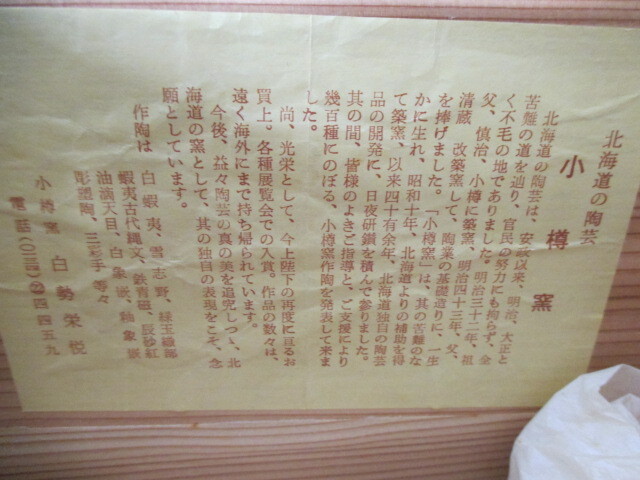 北海道の陶芸
小樽窯
北海道の陶芸は、安政以来、明治、大正と
苦難の道を辿り、官民の努力にも拘らず、全
く不毛の地でありました。明治三十二年、祖
父、慎治、小樽に築窯、明治四十三年、父、
清蔵、改築窯して、陶業の基礎造りに、一生
を捧げました。「小樽窯」は、其の苦難のな
かに生れ、昭和十年、北海道よりの補助を得
て築窯、以来四十有余年、北海道独自の陶芸
品の開発に、日夜研鑚を積んで参りました。
其の間、皆様のよきご指導と、ご支援により
幾百種にのぼる、小樽窯作陶を発表して来ま
した。
尚、光栄として、今上陛下の再度に亘るお
買上。各種展覧会での入賞。作品の数々は、
遠く海外にまで持ち帰られています。
今後、益々陶芸の真の美を追究しつゝ、北
海道の窯として、其の独自の表現をこそ、念
願としています。
作陶は 白蝦夷、雪志野、緑玉織部
蝦夷古代縄文、鉄青磁、辰砂紅
油滴天目、白象嵌、釉象嵌
彫塑陶、三彩手 等々
小樽窯 白勢栄悦
電話(〇一三四)㉒四四五九